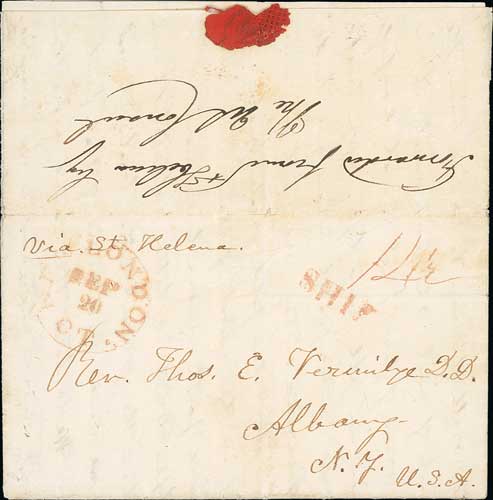 Forwarded from St Helena by
The US Consul
via. St. Helena.
NEW LONDON CT.
SEP
20
SHIP
14½
Rev. Thos. E. Vermilye D.D.
Albany
N.Y.
U.S.A.